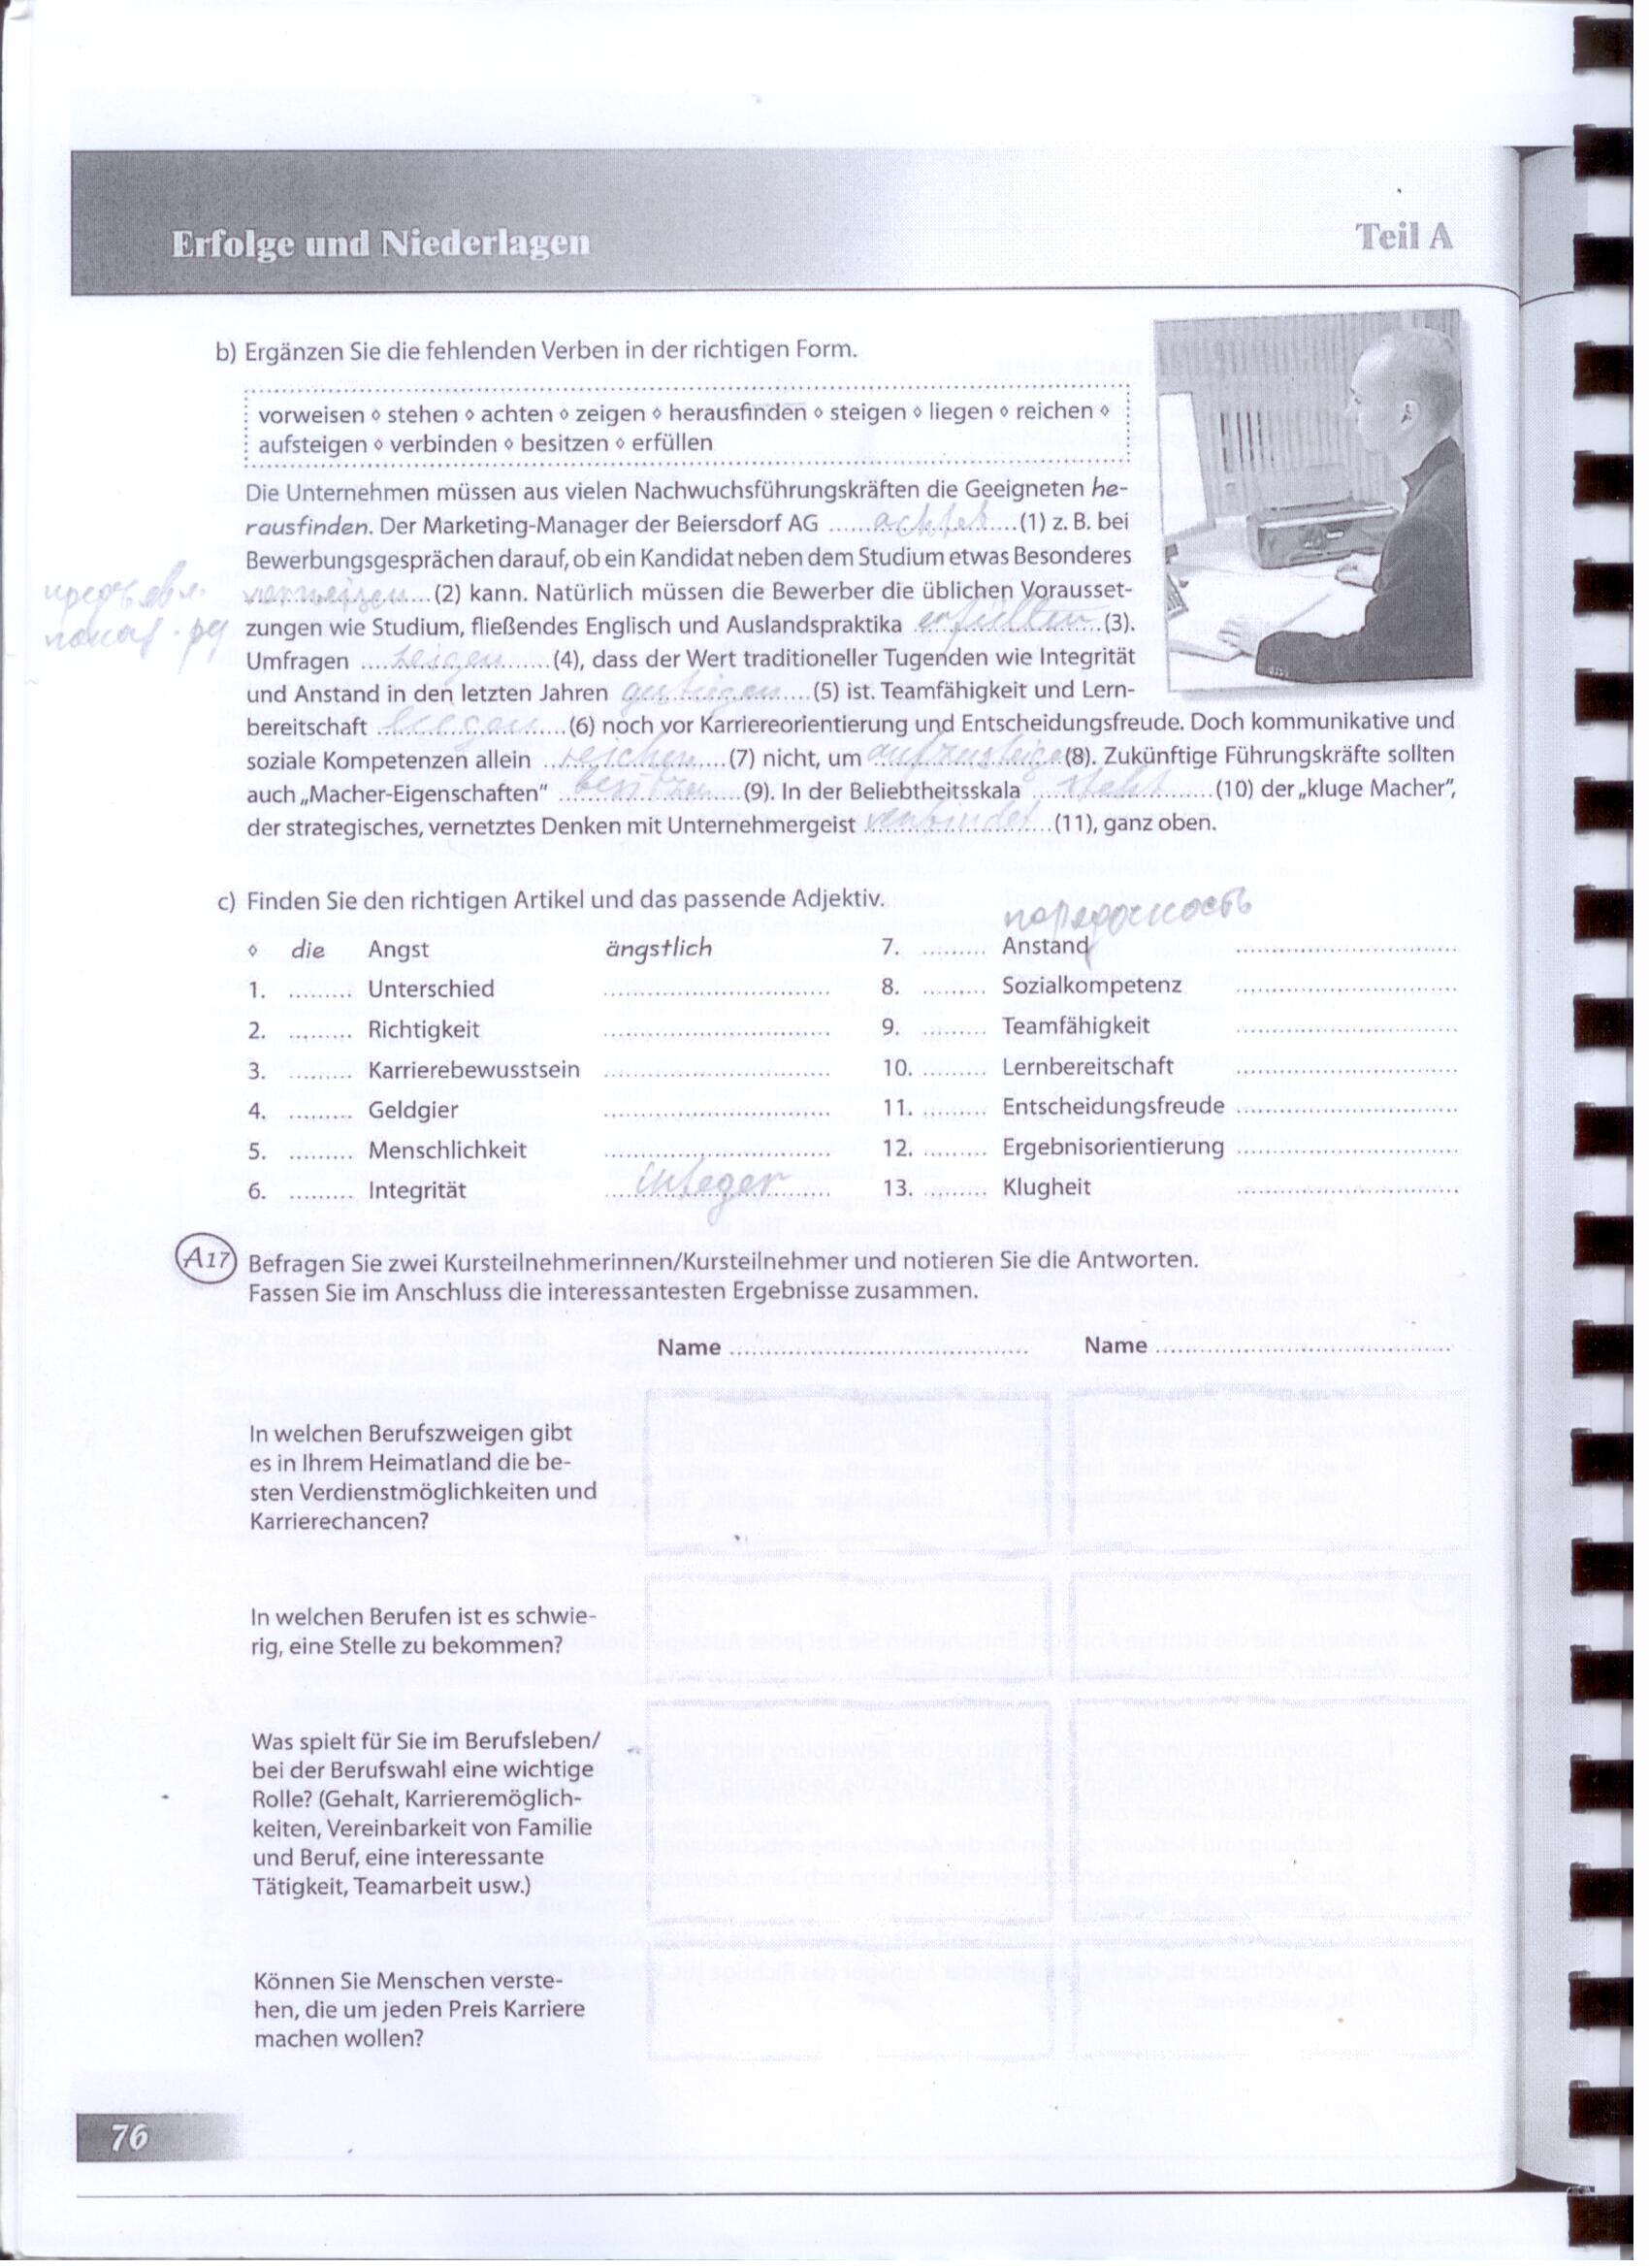 Erfolge und Niederlagen
Teil A
b) Ergänzen Sie die fehlenden Verben in der richtigen Form.
vorweisen ⋄ stehen ⋄ achten ⋄ zeigen ⋄ herausfinden ⋄ steigen ⋄ liegen ⋄ reichen ⋄
aufsteigen ⋄ verbinden ⋄ besitzen ⋄ erfüllen
Die Unternehmen müssen aus vielen Nachwuchsführungskräften die Geeigneten he-
rausfinden. Der Marketing-Manager der Beiersdorf AG achtet (1) z. B. bei
Bewerbungsgesprächen darauf, ob ein Kandidat neben dem Studium etwas Besonderes
vorweisen (2) kann. Natürlich müssen die Bewerber die üblichen Vorausset-
zungen wie Studium, fließendes Englisch und Auslandspraktika erfüllen (3).
Umfragen zeigen (4), dass der Wert traditioneller Tugenden wie Integrität
und Anstand in den letzten Jahren (5) ist. Teamfähigkeit und Lern-
bereitschaft liegen (6) noch vor Karriereorientierung und Entscheidungsfreude. Doch kommunikative und
soziale Kompetenzen allein reichen (7) nicht, um aufzusteigen (8). Zukünftige Führungskräfte sollten
auch „Macher-Eigenschaften" besitzen (9). In der Beliebtheitsskala steht (10) der „kluge Macher",
der strategisches, vernetztes Denken mit Unternehmergeist verbindet (11), ganz oben.
c) Finden Sie den richtigen Artikel und das passende Adjektiv.
⋄ die Angst ängstlich
1. ......... Unterschied ..............................
2. ......... Richtigkeit ..............................
3. ......... Karrierebewusstsein ..............................
4. ......... Geldgier ..............................
5. ......... Menschlichkeit ..............................
6. ......... Integrität integer
7. ......... Anstand ..............................
8. ......... Sozialkompetenz ..............................
9. ......... Teamfähigkeit ..............................
10. ......... Lernbereitschaft ..............................
11. ......... Entscheidungsfreude ..............................
12. ......... Ergebnisorientierung ..............................
13. ......... Klugheit ..............................
A17 Befragen Sie zwei Kursteilnehmerinnen/Kursteilnehmer und notieren Sie die Antworten.
Fassen Sie im Anschluss die interessantesten Ergebnisse zusammen.
Name .............................. Name ..............................
In welchen Berufszweigen gibt
es in Ihrem Heimatland die be-
sten Verdienstmöglichkeiten und
Karrierechancen?
In welchen Berufen ist es schwie-
rig, eine Stelle zu bekommen?
Was spielt für Sie im Berufsleben/
bei der Berufswahl eine wichtige
Rolle? (Gehalt, Karrieremöglich-
keiten, Vereinbarkeit von Familie
und Beruf, eine interessante
Tätigkeit, Teamarbeit usw.)
Können Sie Menschen verste-
hen, die um jeden Preis Karriere
machen wollen?
76